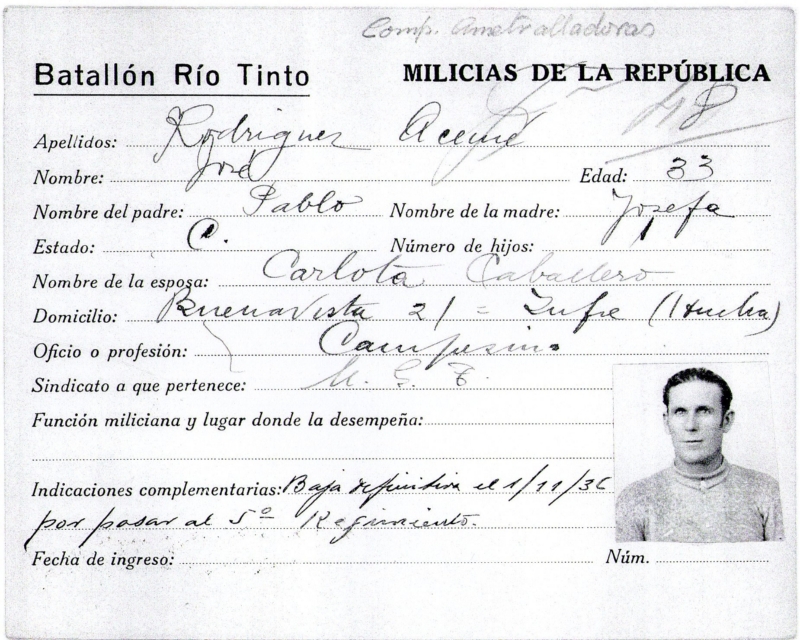 Comp. Ametralladoras
Batallón Río Tinto MILICIAS DE LA REPÚBLICA
48
Apellidos: Rodriguez
Nombre: José Edad: 33
Nombre del padre: Pablo Nombre de la madre: Josefa
Estado: C. Número de hijos: 1
Nombre de la esposa: Carlota Caballero
Domicilio: Buenavista 21 = Zufre (Huelva)
Oficio o profesión: Campesino
Sindicato a que pertenece: U. G. T.
Función miliciana y lugar donde la desempeña:
Indicaciones complementarias: Baja definitiva el 1/11/36
por pasar al 5º Regimiento.
Fecha de ingreso: Núm.